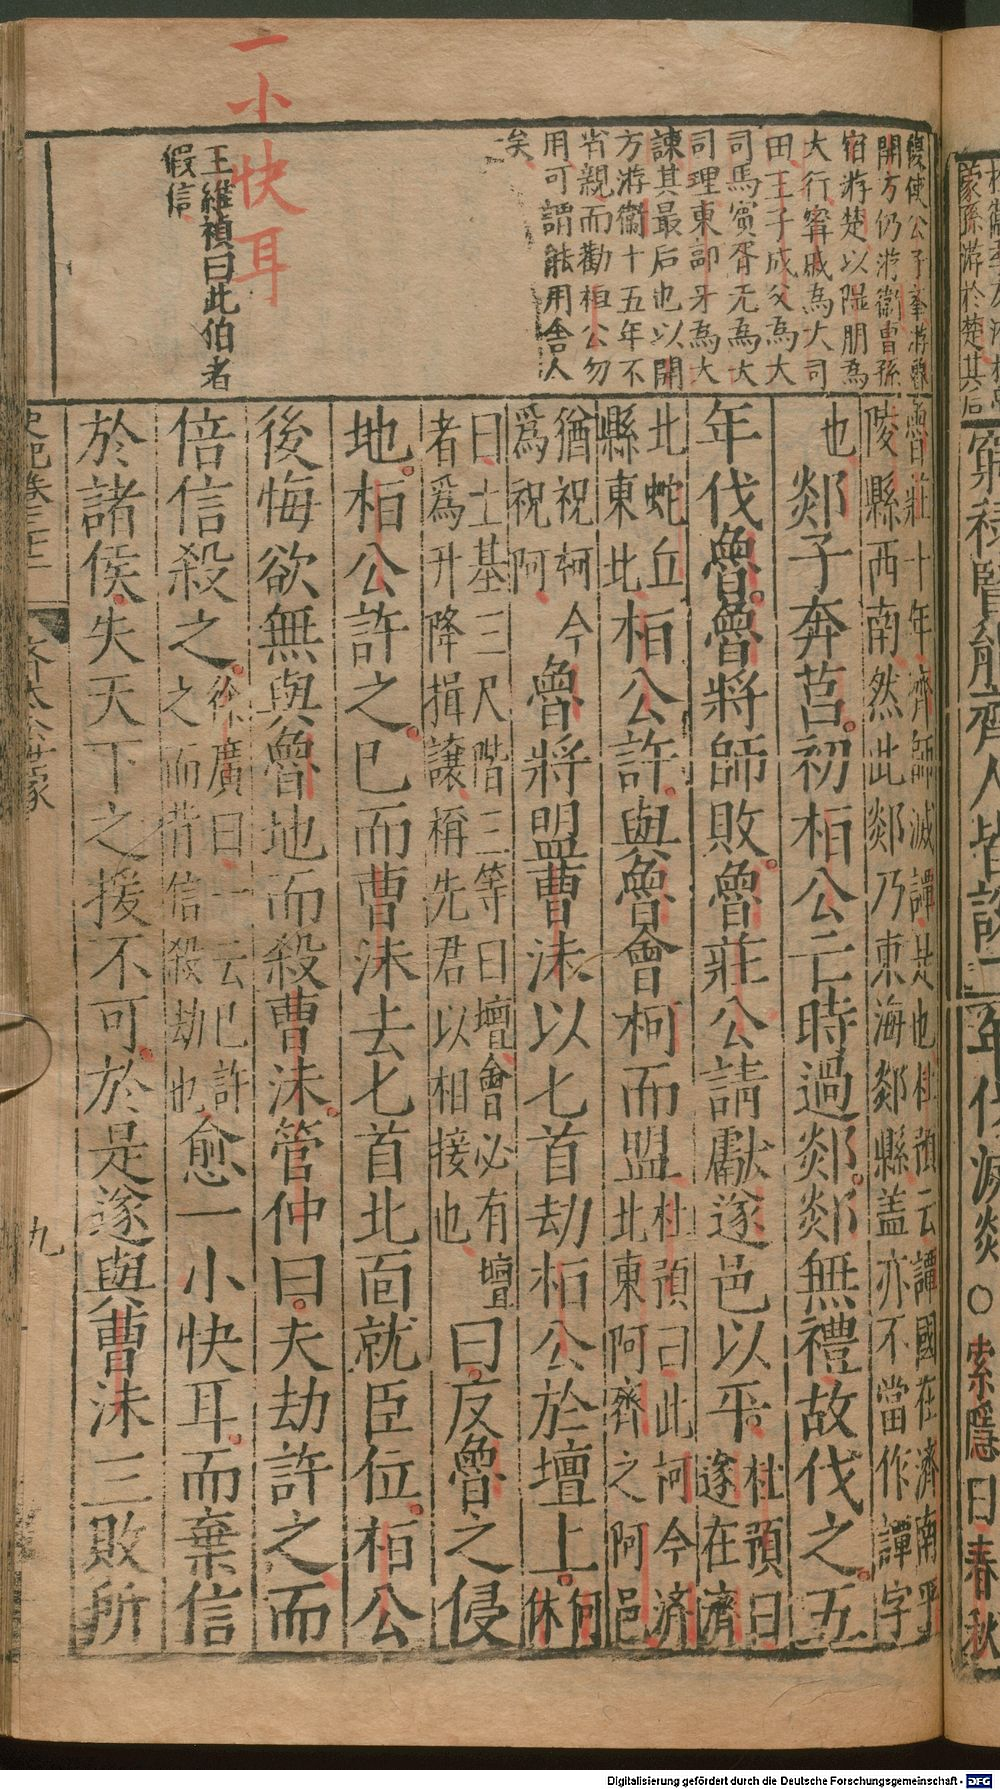 一小快耳
復使公子舉游魯
開方仍游衛曹孫
宿游楚以隰朋為
大行甯戚為大司
田王子成父為大
司馬賓胥无為大
司理東郭牙為大
諫其最后也以開
方游衛十五年不
省親而勸桓公勿
用可謂能用舍人
矣
王維禎曰此伯者
假信
莊十年齊師滅譚是也杜預云譚國在濟南平
陵縣西南然此郯乃東海郯縣盖亦不當作譚字
也郯子奔莒初桓公亡時過郯郯無禮故伐之五
年伐魯魯將師敗魯莊公請獻遂邑以平杜預曰遂在濟
北蛇丘縣東北桓公許與魯會柯而盟杜預曰此柯今济北東阿齊之阿邑
猶祝柯今為祝阿魯將盟曹沬以匕首劫桓公於壇上何休
曰土基三尺階三等曰壇會必有壇者為升降揖讓稱先君以相接也曰反魯之侵
地桓公許之已而曹沬去匕首北面就臣位桓公
後悔欲無與魯地而殺曹沬管仲曰夫劫許之而
倍信殺之徐廣曰一云已許之而背信殺劫也愈一小快耳而棄信
於諸侯失天下之援不可於是遂與曹沬三敗所
史記卷三十二
齊太公世家
九
蒙孫游於楚其后
年伐滅郯○索隱曰春秋
Digitalisierung gefördert durch die Deutsche Forschungsgemeinschaft - DFG